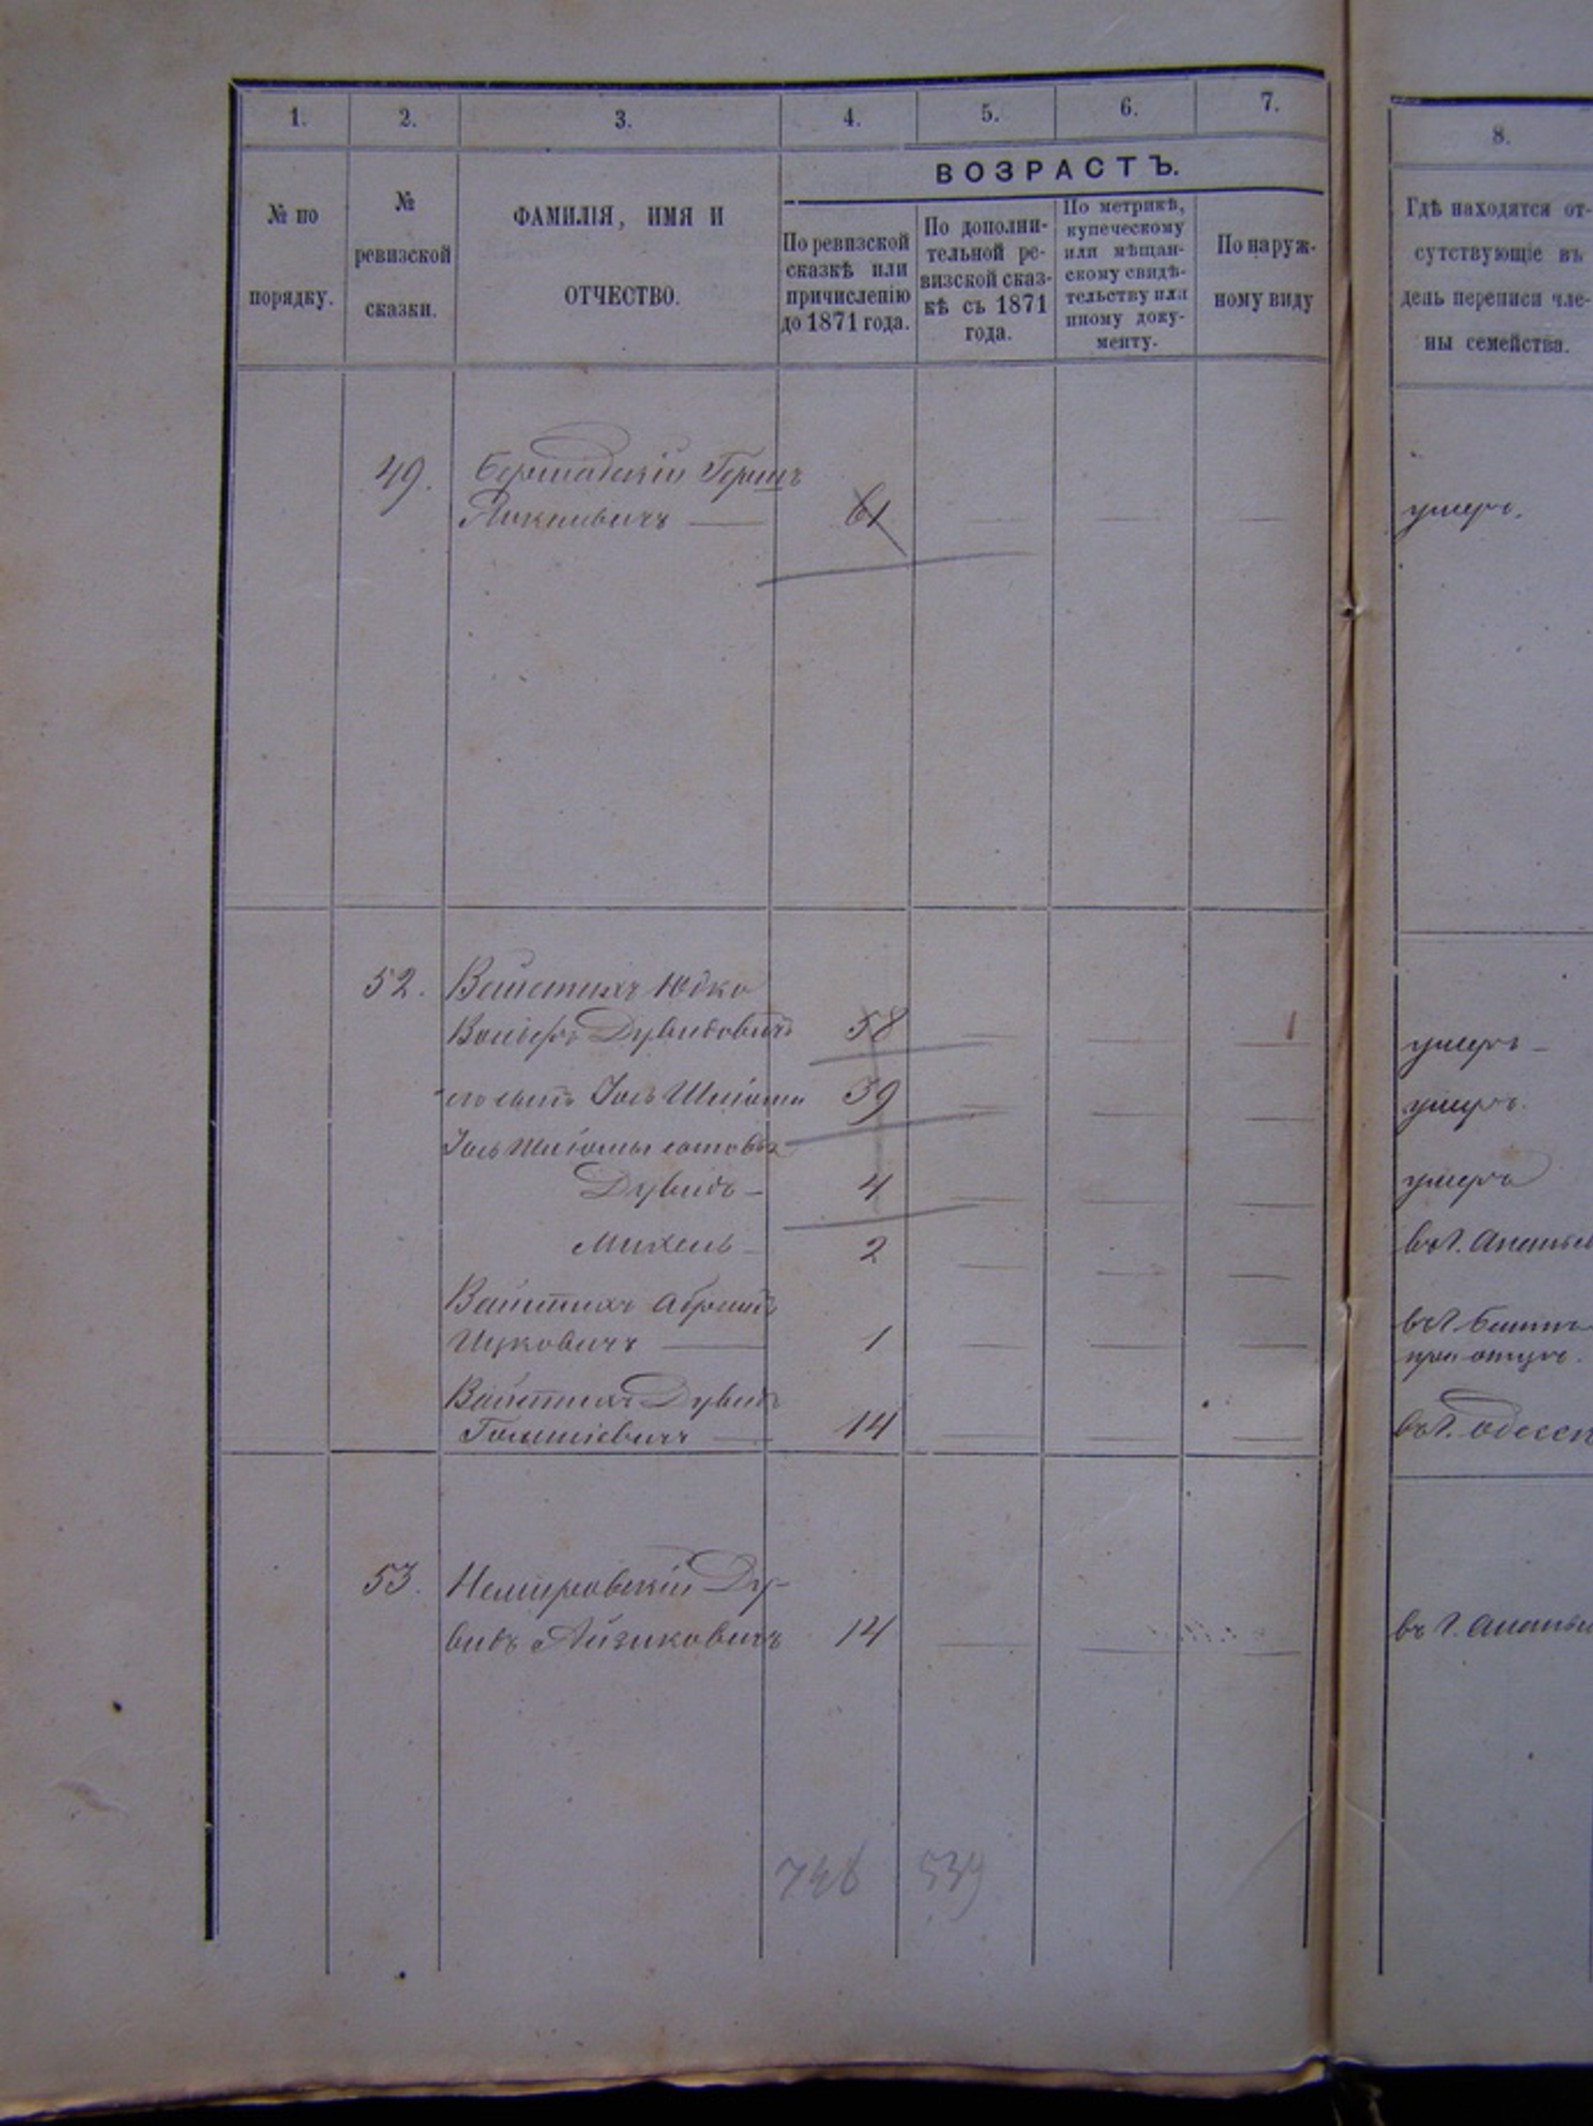 1. 2. 3. 4. 5. 6. 7. 8.
ВОЗРАСТЪ.
№ по
порядку.
№
ревизской
сказки.
ФАМИЛІЯ, ИМЯ И
ОТЧЕСТВО.
По ревизской
сказкѣ или
причисленію
до 1871 года.
По дополни-
тельной ре-
визской сказ-
кѣ съ 1871
года.
По метрикѣ,
купеческому
или мѣщан-
скому свидѣ-
тельству или
иному доку-
менту.
По наруж-
ному виду
Гдѣ находятся от-
сутствующіе въ
день переписи чле-
ны семейства.
49. Бершадскій Гершъ
61 умеръ.
52. Вайстихъ Юдко
Вольфъ Дувидовичъ 58 1 умеръ
его сынъ Іось Шліома 39 умеръ.
Іось Шліомы сыновья
Дувидъ 4 умеръ
Михель 2 въ г. Ананьев
Вайстихъ Абрамъ
Ицковичъ 1 въ г.
при отцѣ.
Вайстихъ Дувидъ
14 въ г. Одесс
53. Немировскій Ду-
видъ Айзиковичъ 14 въ г. Ананьев
746 539